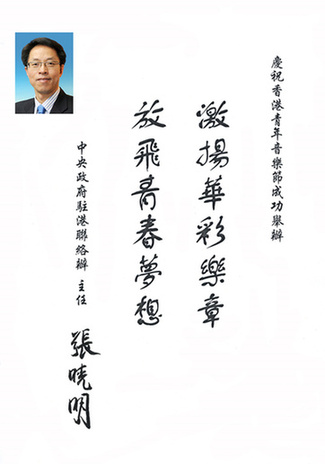 慶祝香港青年音樂節成功舉辦
激揚華彩樂章
放飛青春夢想
中央政府駐港聯絡辦 主任
張曉明